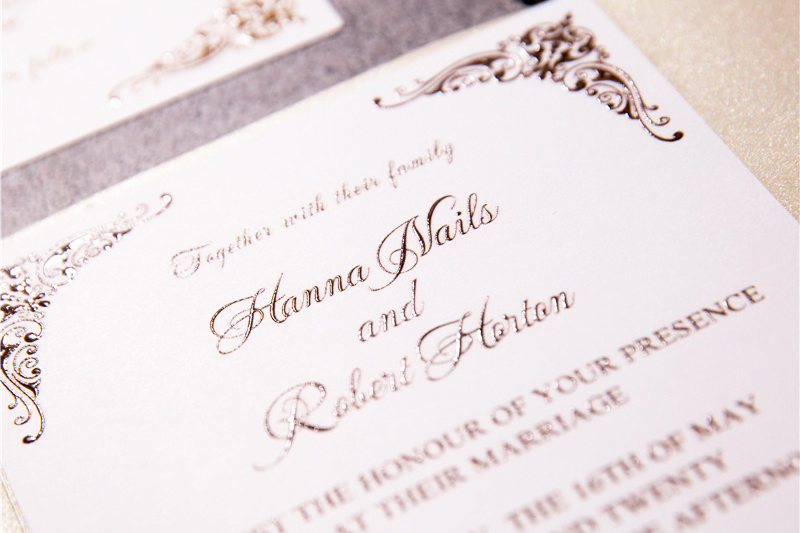 Together with their family
Hanna Nails
and
Robert Horton
THE HONOUR OF YOUR PRESENCE
AT THEIR MARRIAGE
THE 16TH OF MAY
TWENTY